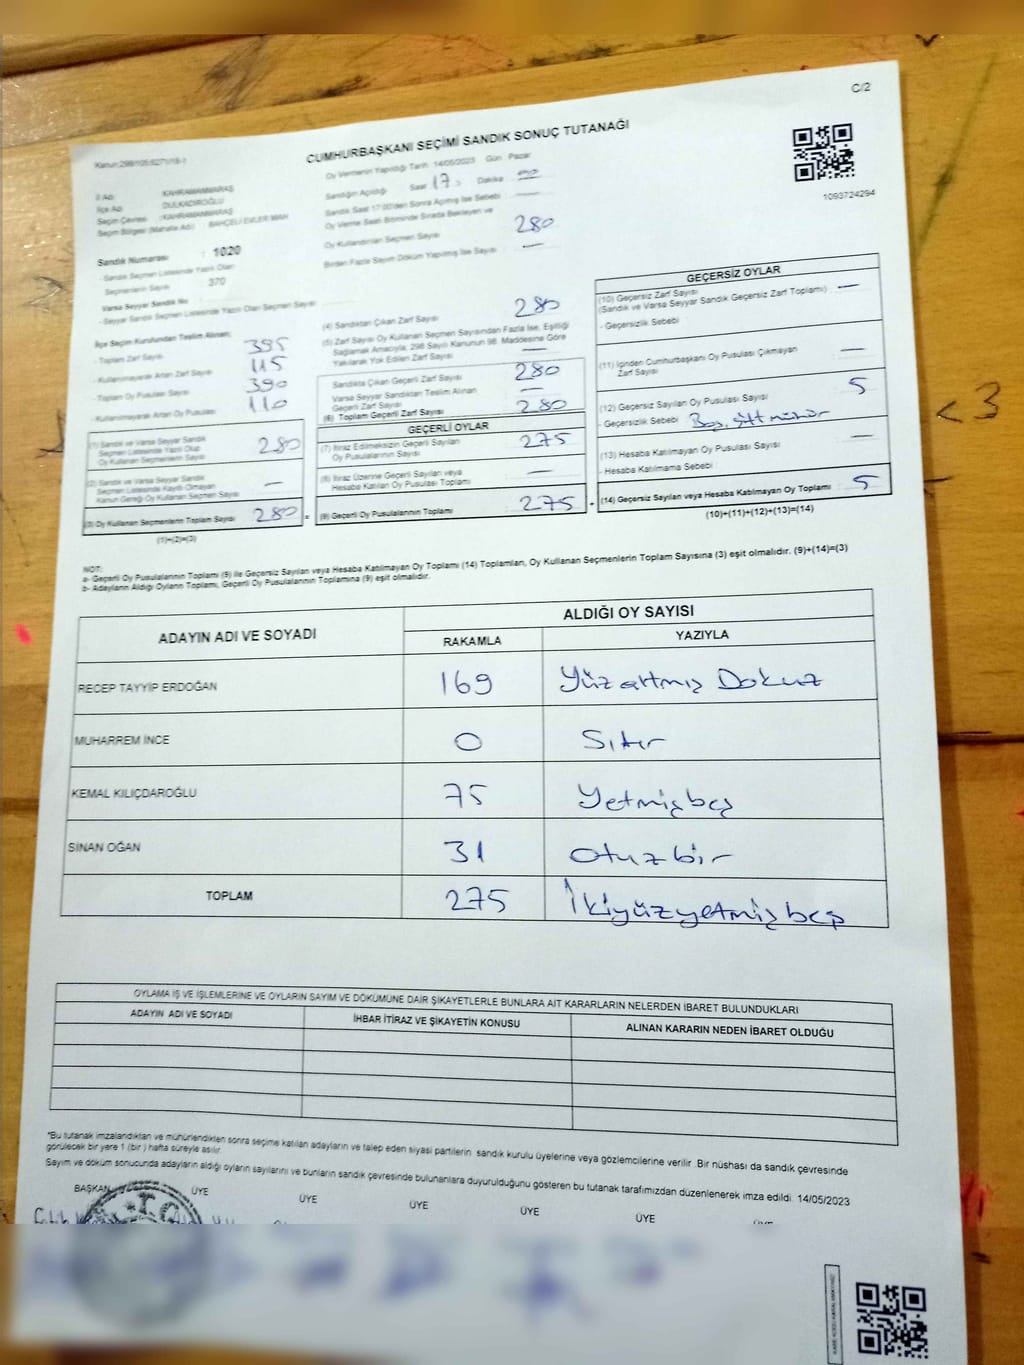 C/2
CUMHURBAŞKANI SEÇİMİ SANDIK SONUÇ TUTANAĞI
1093724294
İl Adı : KAHRAMANMARAŞ
İlçe Adı : DULKADİROĞLU
Seçim Çevresi : KAHRAMANMARAŞ
Seçim Bölgesi (Mahalle Adı) : BAHÇELİ EVLER MAH
Sandık Numarası : 1020
- Sandık Seçmen Listesinde Yazılı Olan
Seçmenlerin Sayısı : 370
Varsa Seyyar Sandık No
- Seyyar Sandık Seçmen Listesinde Yazılı Olan Seçmen Sayısı :
İlçe Seçim Kurulundan Teslim Alınan;
- Toplam Zarf Sayısı : 395
- Kullanılmayarak Artan Zarf Sayısı : 115
- Toplam Oy Pusulası : 390
- Kullanılmayarak Artan Oy Pusulası : 110
(1) Sandık ve Varsa Seyyar Sandık
Seçmen Listesinde Yazılı Olup
Oy Kullanan Seçmenlerin Sayısı : 280
(2) Sandık ve Varsa Seyyar Sandık
Seçmen Listesinde Kayıtlı Olmayan
Kanun Gereği Oy Kullanan Seçmen Sayısı : —
(3) Oy Kullanan Seçmenlerin Toplam Sayısı : 280
(1)+(2)=(3)
Oy Vermenin Yapıldığı Tarih : 14/05/2023 Gün : Pazar
Sandığın Açıldığı Saat 17 Dakika
Sandık Saat 17:00'den Sonra Açılmış İse Sebebi : —
Oy Verme Saati Bitiminde Sırada Bekleyen ve
Oy Kullandırılan Seçmen Sayısı : 280
Birden Fazla Sayım Döküm Yapılmış İse Sayısı : —
(4) Sandıktan Çıkan Zarf Sayısı : 280
(5) Zarf Sayısı Oy Kullanan Seçmen Sayısından Fazla İse, Eşitliği
Sağlamak Amacıyla, 298 Sayılı Kanunun 98. Maddesine Göre
Yakılarak Yok Edilen Zarf Sayısı : —
Sandıkta Çıkan Geçerli Zarf Sayısı : 280
Varsa Seyyar Sandıktan Teslim Alınan
Geçerli Zarf Sayısı : —
(6) Toplam Geçerli Zarf Sayısı : 280
GEÇERLİ OYLAR
(7) İtiraz Edilmeksizin Geçerli Sayılan
Oy Pusulalarının Sayısı : 275
(8) İtiraz Üzerine Geçerli Sayılan veya
Hesaba Katılan Oy Pusulası Toplamı : —
(9) Geçerli Oy Pusulalarının Toplamı : 275
GEÇERSİZ OYLAR
(10) Geçersiz Zarf Sayısı
(Sandık ve Varsa Seyyar Sandık Geçersiz Zarf Toplamı) : —
- Geçersizlik Sebebi :
(11) İçinden Cumhurbaşkanı Oy Pusulası Çıkmayan
Zarf Sayısı : —
(12) Geçersiz Sayılan Oy Pusulası Sayısı : 5
- Geçersizlik Sebebi : Boş,
(13) Hesaba Katılmayan Oy Pusulası Sayısı : —
- Hesaba Katılmama Sebebi :
(14) Geçersiz Sayılan veya Hesaba Katılmayan Oy Toplamı : 5
(10)+(11)+(12)+(13)=(14)
NOT:
a- Geçerli Oy Pusulalarının Toplamı (9) ile Geçersiz Sayılan veya Hesaba Katılmayan Oy Toplamı (14) Toplamları, Oy Kullanan Seçmenlerin Toplam Sayısına (3) eşit olmalıdır. (9)+(14)=(3)
b- Adayların Aldığı Oyların Toplamı, Geçerli Oy Pusulalarının Toplamına (9) eşit olmalıdır.
ADAYIN ADI VE SOYADI ALDIĞI OY SAYISI
RAKAMLA YAZIYLA
RECEP TAYYİP ERDOĞAN 169 Yüzaltmış Dokuz
MUHARREM İNCE 0 Sıfır
KEMAL KILIÇDAROĞLU 75 Yetmişbeş
SİNAN OĞAN 31 Otuzbir
TOPLAM 275 İkiyüzyetmişbeş
OYLAMA İŞ VE İŞLEMLERİNE VE OYLARIN SAYIM VE DÖKÜMÜNE DAİR ŞİKAYETLERLE BUNLARA AİT KARARLARIN NELERDEN İBARET BULUNDUKLARI
ADAYIN ADI VE SOYADI İHBAR İTİRAZ VE ŞİKAYETİN KONUSU ALINAN KARARIN NEDEN İBARET OLDUĞU
*Bu tutanak imzalandıktan ve mühürlendikten sonra seçime katılan adayların ve talep eden siyasi partilerin sandık kurulu üyelerine veya gözlemcilerine verilir. Bir nüshası da sandık çevresinde
görülecek bir yere 1 (bir) hafta süreyle asılır.
Sayım ve döküm sonucunda adayların aldığı oyların sayılarını ve bunların sandık çevresinde bulunanlara duyurulduğunu gösteren bu tutanak tarafımızdan düzenlenerek imza edildi. 14/05/2023
BAŞKAN ÜYE ÜYE ÜYE ÜYE ÜYE ÜYE
<3